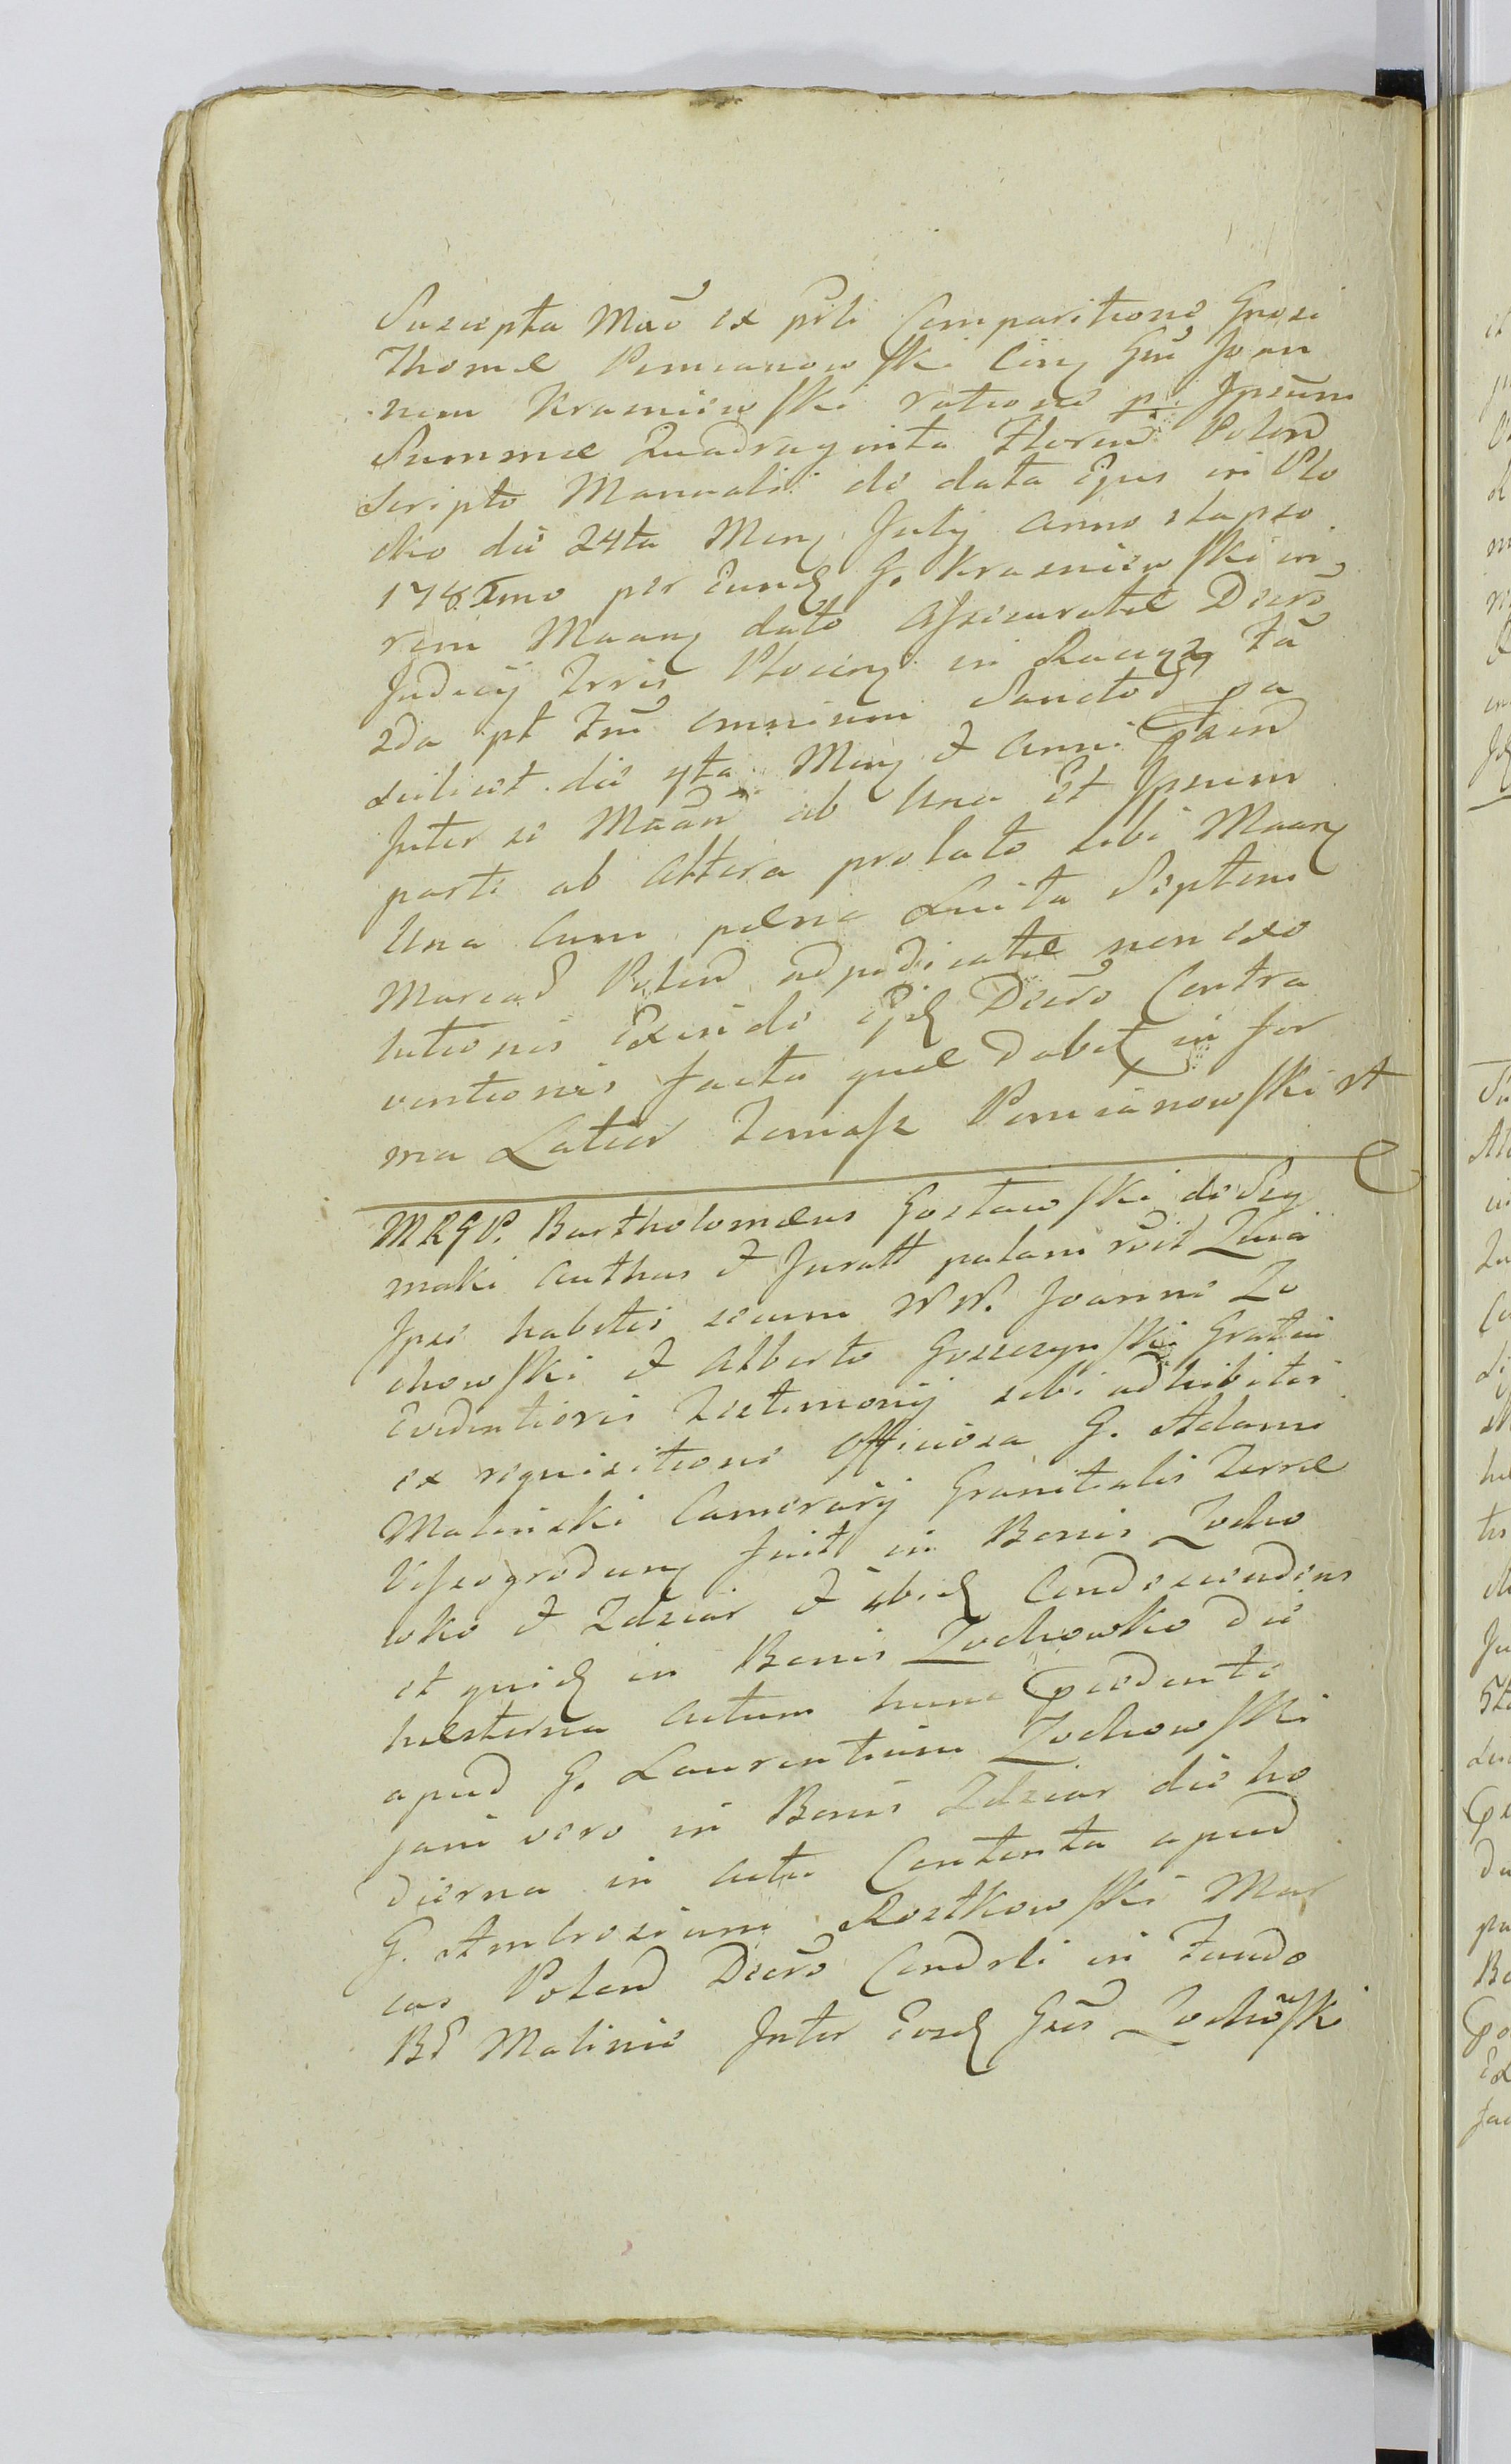 Suscepta Mão ex prti Comparitione Grosi
Thomæ Pomianowski Cinq Gnũ Joan
nem Krasniewski ratione pr Ipsum
Summæ Quadraginta Floren Polend
Scripto Manuali de data Ejus in Plo
cko die 24ta Menq July anno elapso
178 Imo per Eund G. Krasniewski in
rem Maanq dato Assecuratæ Decro
Judicij Trris Plocenq in Raciąq Fã
2da pt Fm omnium Sanctod pa
scilicet die 4ta Menq & Anni Prnd
Inter se Maãn ab Una Et Ipsum
parte ab Altera prolato sibi Maanq
Una Cum pæna Luita Septem
Marcad Polend adjudicatæ non exo
lutionis Exinde Ejd Decro Contra
ventionis facta quæ dabit in for
ma Lation Tomasz Pomianowski A
MRGP. Bartholomæus Gostawski de Szy
maki authus & Juratt palam rcit Quia
Ipse habitis secum NN. Joanne Zo
chowski & Alberto Gosczynski Gratia
Evidentioris Testimonij sibi adhibitis
ex requisitione Officiosa G. Adami
Malinski Camerarij Granitialis Terræ
Vissogrodienq fuit in Bonis Zocho
wko & Zdziar & ibid Condescendens
et quid in Bonis Zochowko die
hesterna actum hunc Præcedente
apud G. Laurentium Zochowski
jam vero in Bonis Zdziar die ho
dierna in actu Contenta apud
G. Ambrosium Rostkowski Mar
cas Polend Decro Condrli in Fundo
BP Malinie Inter Eosd Gros Zochowski